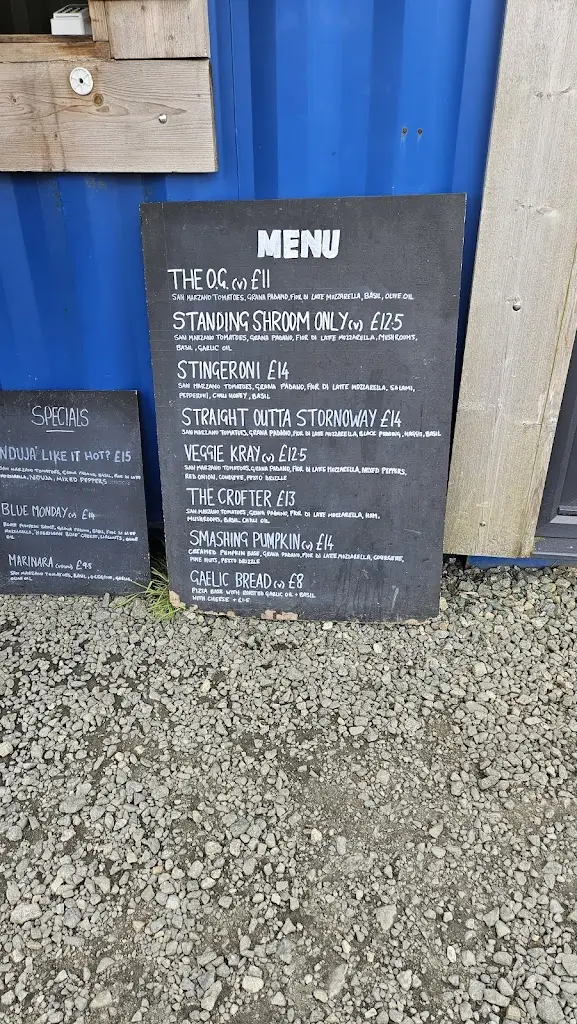 MENU
THE O.G. (V) £11
SAN MARZANO TOMATOES, GRANA PADANO, FIOR DI LATTE MOZZARELLA, BASIL, OLIVE OIL
STANDING SHROOM ONLY (V) £12.5
SAN MARZANO TOMATOES, GRANA PADANO, FIOR DI LATTE MOZZARELLA, MUSHROOMS,
BASIL, GARLIC OIL
STINGERONI £14
SAN MARZANO TOMATOES, GRANA PADANO, FIOR DI LATTE MOZZARELLA, SALAMI,
PEPPERONI, CHILLI HONEY, BASIL
STRAIGHT OUTTA STORNOWAY £14
SAN MARZANO TOMATOES, GRANA PADANO, FIOR DI LATTE MOZZARELLA, BLACK PUDDING, HAGGIS, BASIL
VEGGIE KRAY (V) £12.5
SAN MARZANO TOMATOES, GRANA PADANO, FIOR DI LATTE MOZZARELLA, MIXED PEPPERS,
RED ONION, COURGETTE, PESTO DRIZZLE
THE CROFTER £13
SAN MARZANO TOMATOES, GRANA PADANO, FIOR DI LATTE MOZZARELLA, HAM,
MUSHROOMS, BASIL, CHILLI OIL
SMASHING PUMPKIN (V) £14
CREAMED PUMPKIN BASE, GRANA PADANO, FIOR DI LATTE MOZZARELLA, COURGETTE,
PINE NUTS, PESTO DRIZZLE
GAELIC BREAD (V) £8
PIZZA BASE WITH ROASTED GARLIC OIL + BASIL
WITH CHEESE + £1.5
SPECIALS
NDUJA LIKE IT HOT? £15
SAN MARZANO TOMATOES, GRANA PADANO, BASIL, FIOR DI LATTE
MOZZARELLA, NDUJA, MIXED PEPPERS
BLUE MONDAY (V) £14
PUMPKIN BASE, GRANA PADANO, BASIL, FIOR DI LATTE
MOZZARELLA, "HEBRIDEAN BLUE" CHEESE, OLIVE
OIL
MARINARA £9.5
SAN MARZANO TOMATOES, BASIL, OREGANO, GARLIC,
OLIVE OIL